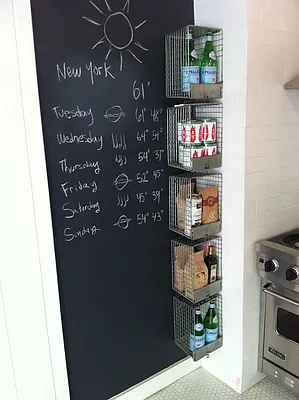 New York
61°
Tuesday 61° 48°
Wednesday 64° 54°
Thursday 54° 37°
Friday 52° 45°
Saturday 45° 39°
Sunday 54° 43°